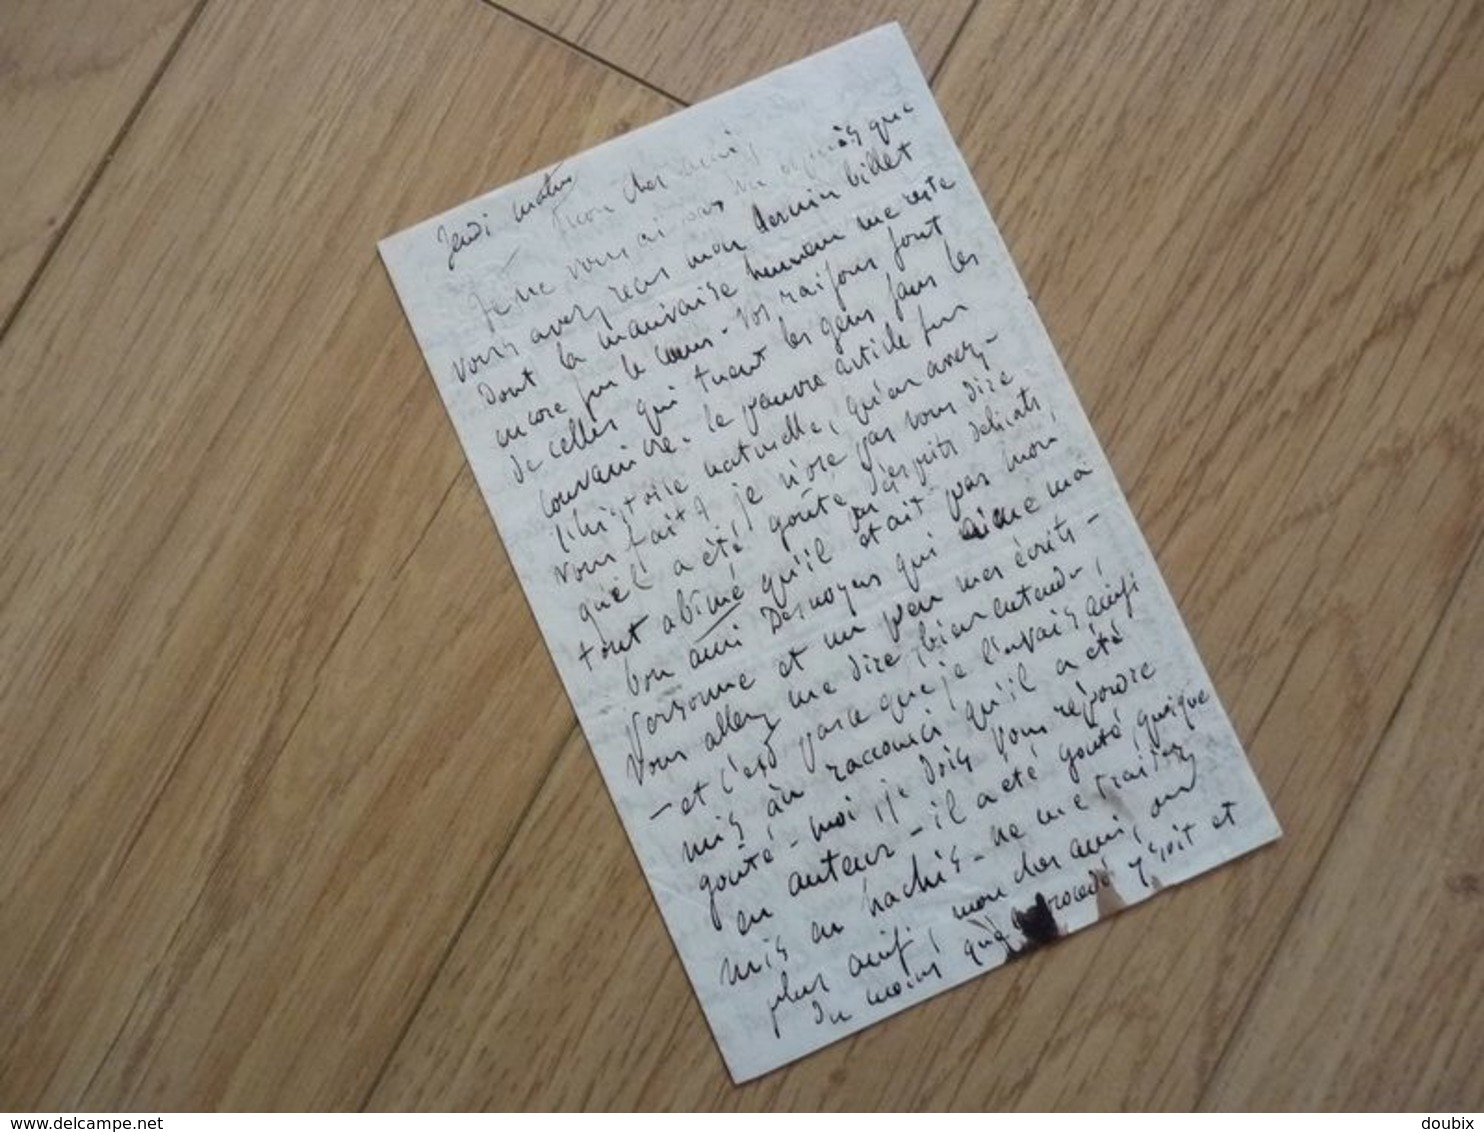 Jeudi matin
Mon cher ami,
Je ne vous ai pas vu depuis que
vous avez reçu mon dernier billet
dont la mauvaise humeur me reste
encore sur le cœur. Vos raisons sont
de celles qui tuent les gens sans les
convaincre. le pauvre article sur
l'histoire naturelle, qu'en avez-
vous fait? je n'ose pas vous dire
qu'il a été goûté d'esprits délicats,
tout abîmé qu'il était par mon
bon ami Desnoyers qui aime ma
personne et un peu mes écrits -
Vous allez me dire, bien entendu,
- et c'est parce que je l'avais ainsi
mis en raccourci qu'il a été
goûté - moi, je dois vous répondre
en auteur - il a été goûté quoique
mis en hachis - ne me traitez
plus ainsi, mon cher ami, ou
du moins que le procédé soit et
www.delcampe.net
doubix